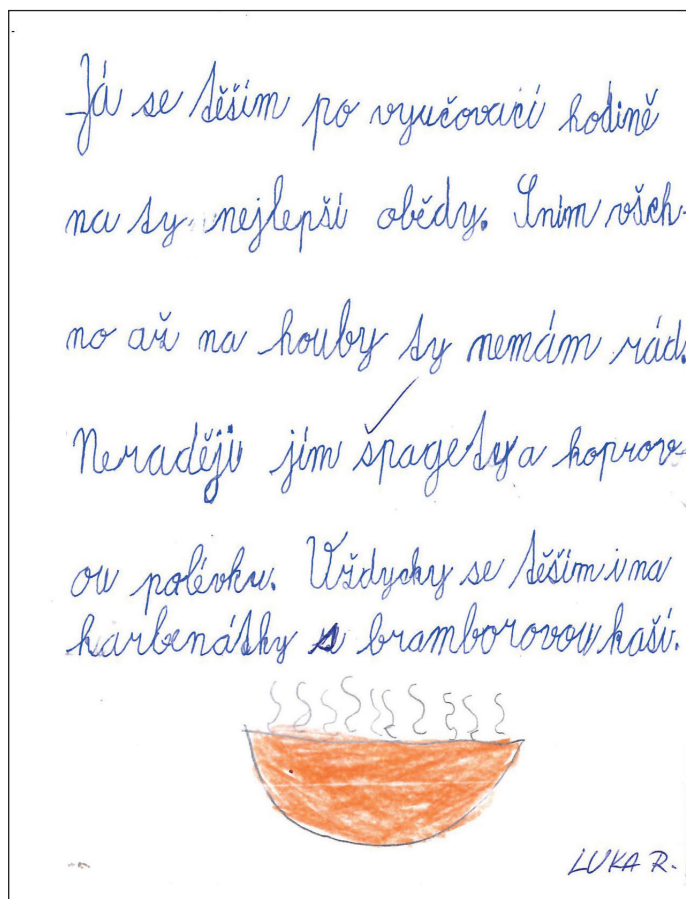 Já se těším po vyučovací hodině
na ty nejlepší obědy. Sním všch-
no až na houby ty nemám rád.
Neraději jím špagety a koprov-
ou polévku. Vždycky se těším i na
karbenátky s bramborovou kaší.
LUKA R.